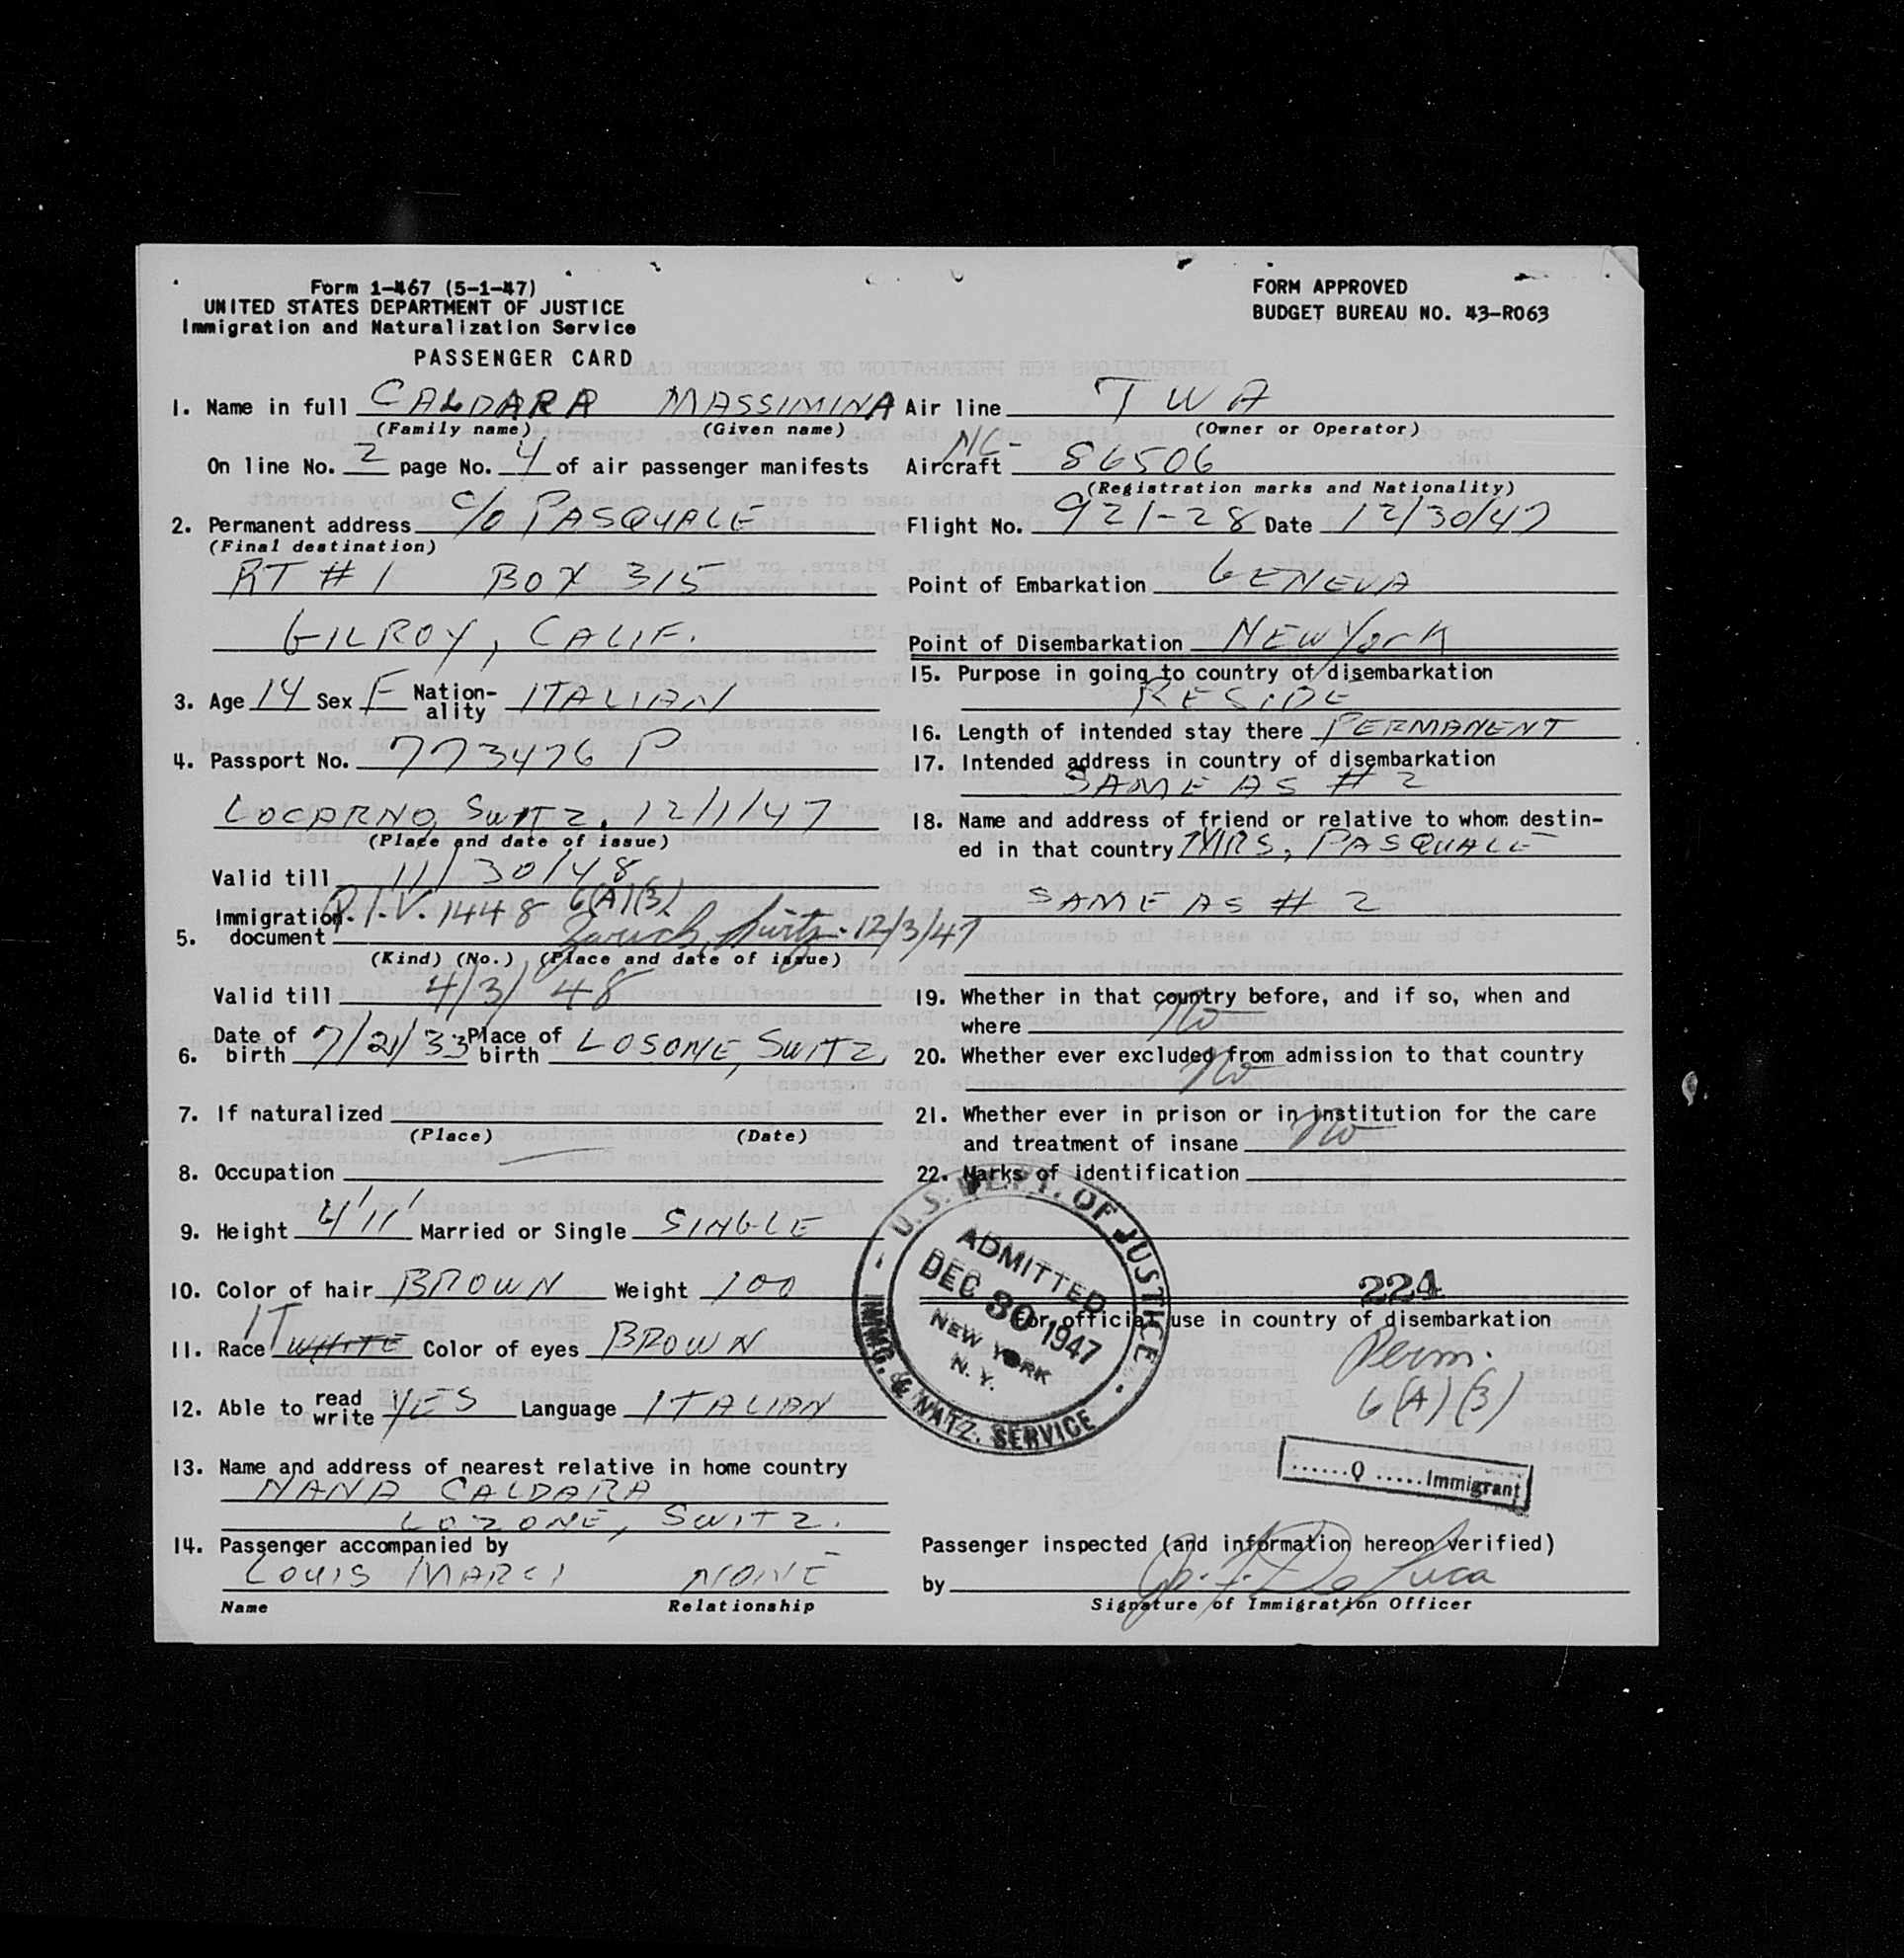 Form 1-467 (5-1-47)
UNITED STATES DEPARTMENT OF JUSTICE
Immigration and Naturalization Service
PASSENGER CARD
FORM APPROVED
BUDGET BUREAU NO. 43-R063
1. Name in full CALDARA MASSIMINA
(Family name) (Given name)
On line No. 2 page No. 4 of air passenger manifests
2. Permanent address c/o PASQUALE
(Final destination)
RT # 1 BOX 315
GILROY, CALIF.
3. Age 14 Sex F Nation-ality ITALIAN
4. Passport No. 773476 P
LOCARNO, SWITZ. 12/1/47
(Place and date of issue)
Valid till 11/30/48
5. Immigration document Q.I.V. 1448 6(A)(3)
Zurich, Switz. 12/3/47
(Kind) (No.) (Place and date of issue)
Valid till 4/3/48
6. Date of birth 7/21/33 Place of birth LOSONE, SWITZ.
7. If naturalized
(Place) (Date)
8. Occupation
9. Height 4'11" Married or Single SINGLE
10. Color of hair BROWN Weight 100
IT
11. Race WHITE Color of eyes BROWN
12. Able to read write YES Language ITALIAN
13. Name and address of nearest relative in home country
NANA CALDARA
LOZONE, SWITZ.
14. Passenger accompanied by
LOUIS MARCI NONE
Name Relationship
Air line TWA
(Owner or Operator)
NC-
Aircraft 86506
(Registration marks and Nationality)
Flight No. 921-28 Date 12/30/47
Point of Embarkation GENEVA
Point of Disembarkation NEW YORK
15. Purpose in going to country of disembarkation
RESIDE
16. Length of intended stay there PERMANENT
17. Intended address in country of disembarkation
SAME AS # 2
18. Name and address of friend or relative to whom destin-
ed in that country MRS. PASQUALE
SAME AS # 2
19. Whether in that country before, and if so, when and
where No
20. Whether ever excluded from admission to that country
No
21. Whether ever in prison or in institution for the care
and treatment of insane No
22. Marks of identification
U.S. DEPT. OF JUSTICE
ADMITTED
DEC 30 1947
NEW YORK
N. Y.
IMMG. & NATZ. SERVICE
224
For official use in country of disembarkation
Perm.
6(A)(3)
......Q .....Immigrant
Passenger inspected (and information hereon verified)
by J. F. De Luca
Signature of Immigration Officer